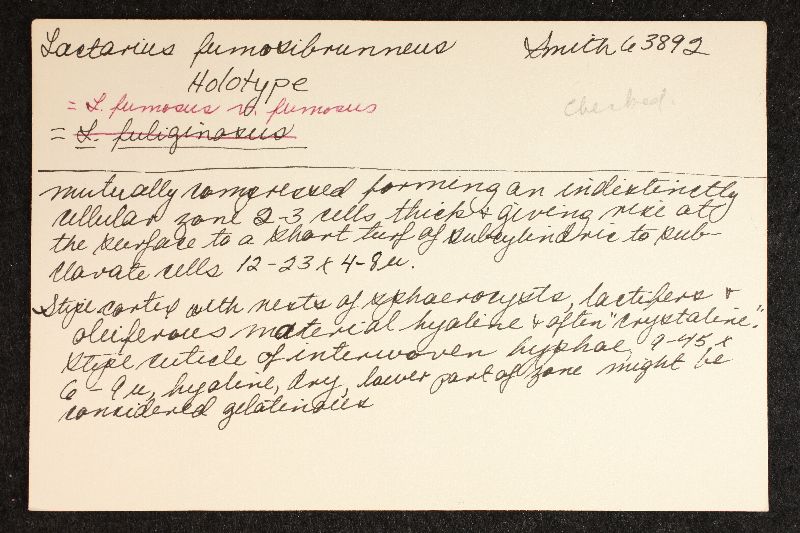 Lactarius fumosibrunneus Smith 63892
Holotype
= L. fumosus v. fumosus Checked.
= L. fuliginosus
mutually compressed forming an indistinctly
cellular zone 2-3 cells thick & giving rise at
the surface to a short turf of subcylindric to sub-
clavate cells 12-23 x 4-8u.
Stipe cortex with nests of sphaerocysts, lactifers &
oleiferous material hyaline & often "crystaline".
Stipe cuticle of interwoven hyphae, 9-45 x
6-9u, hyaline, dry, lower part of zone might be
considered gelatinous